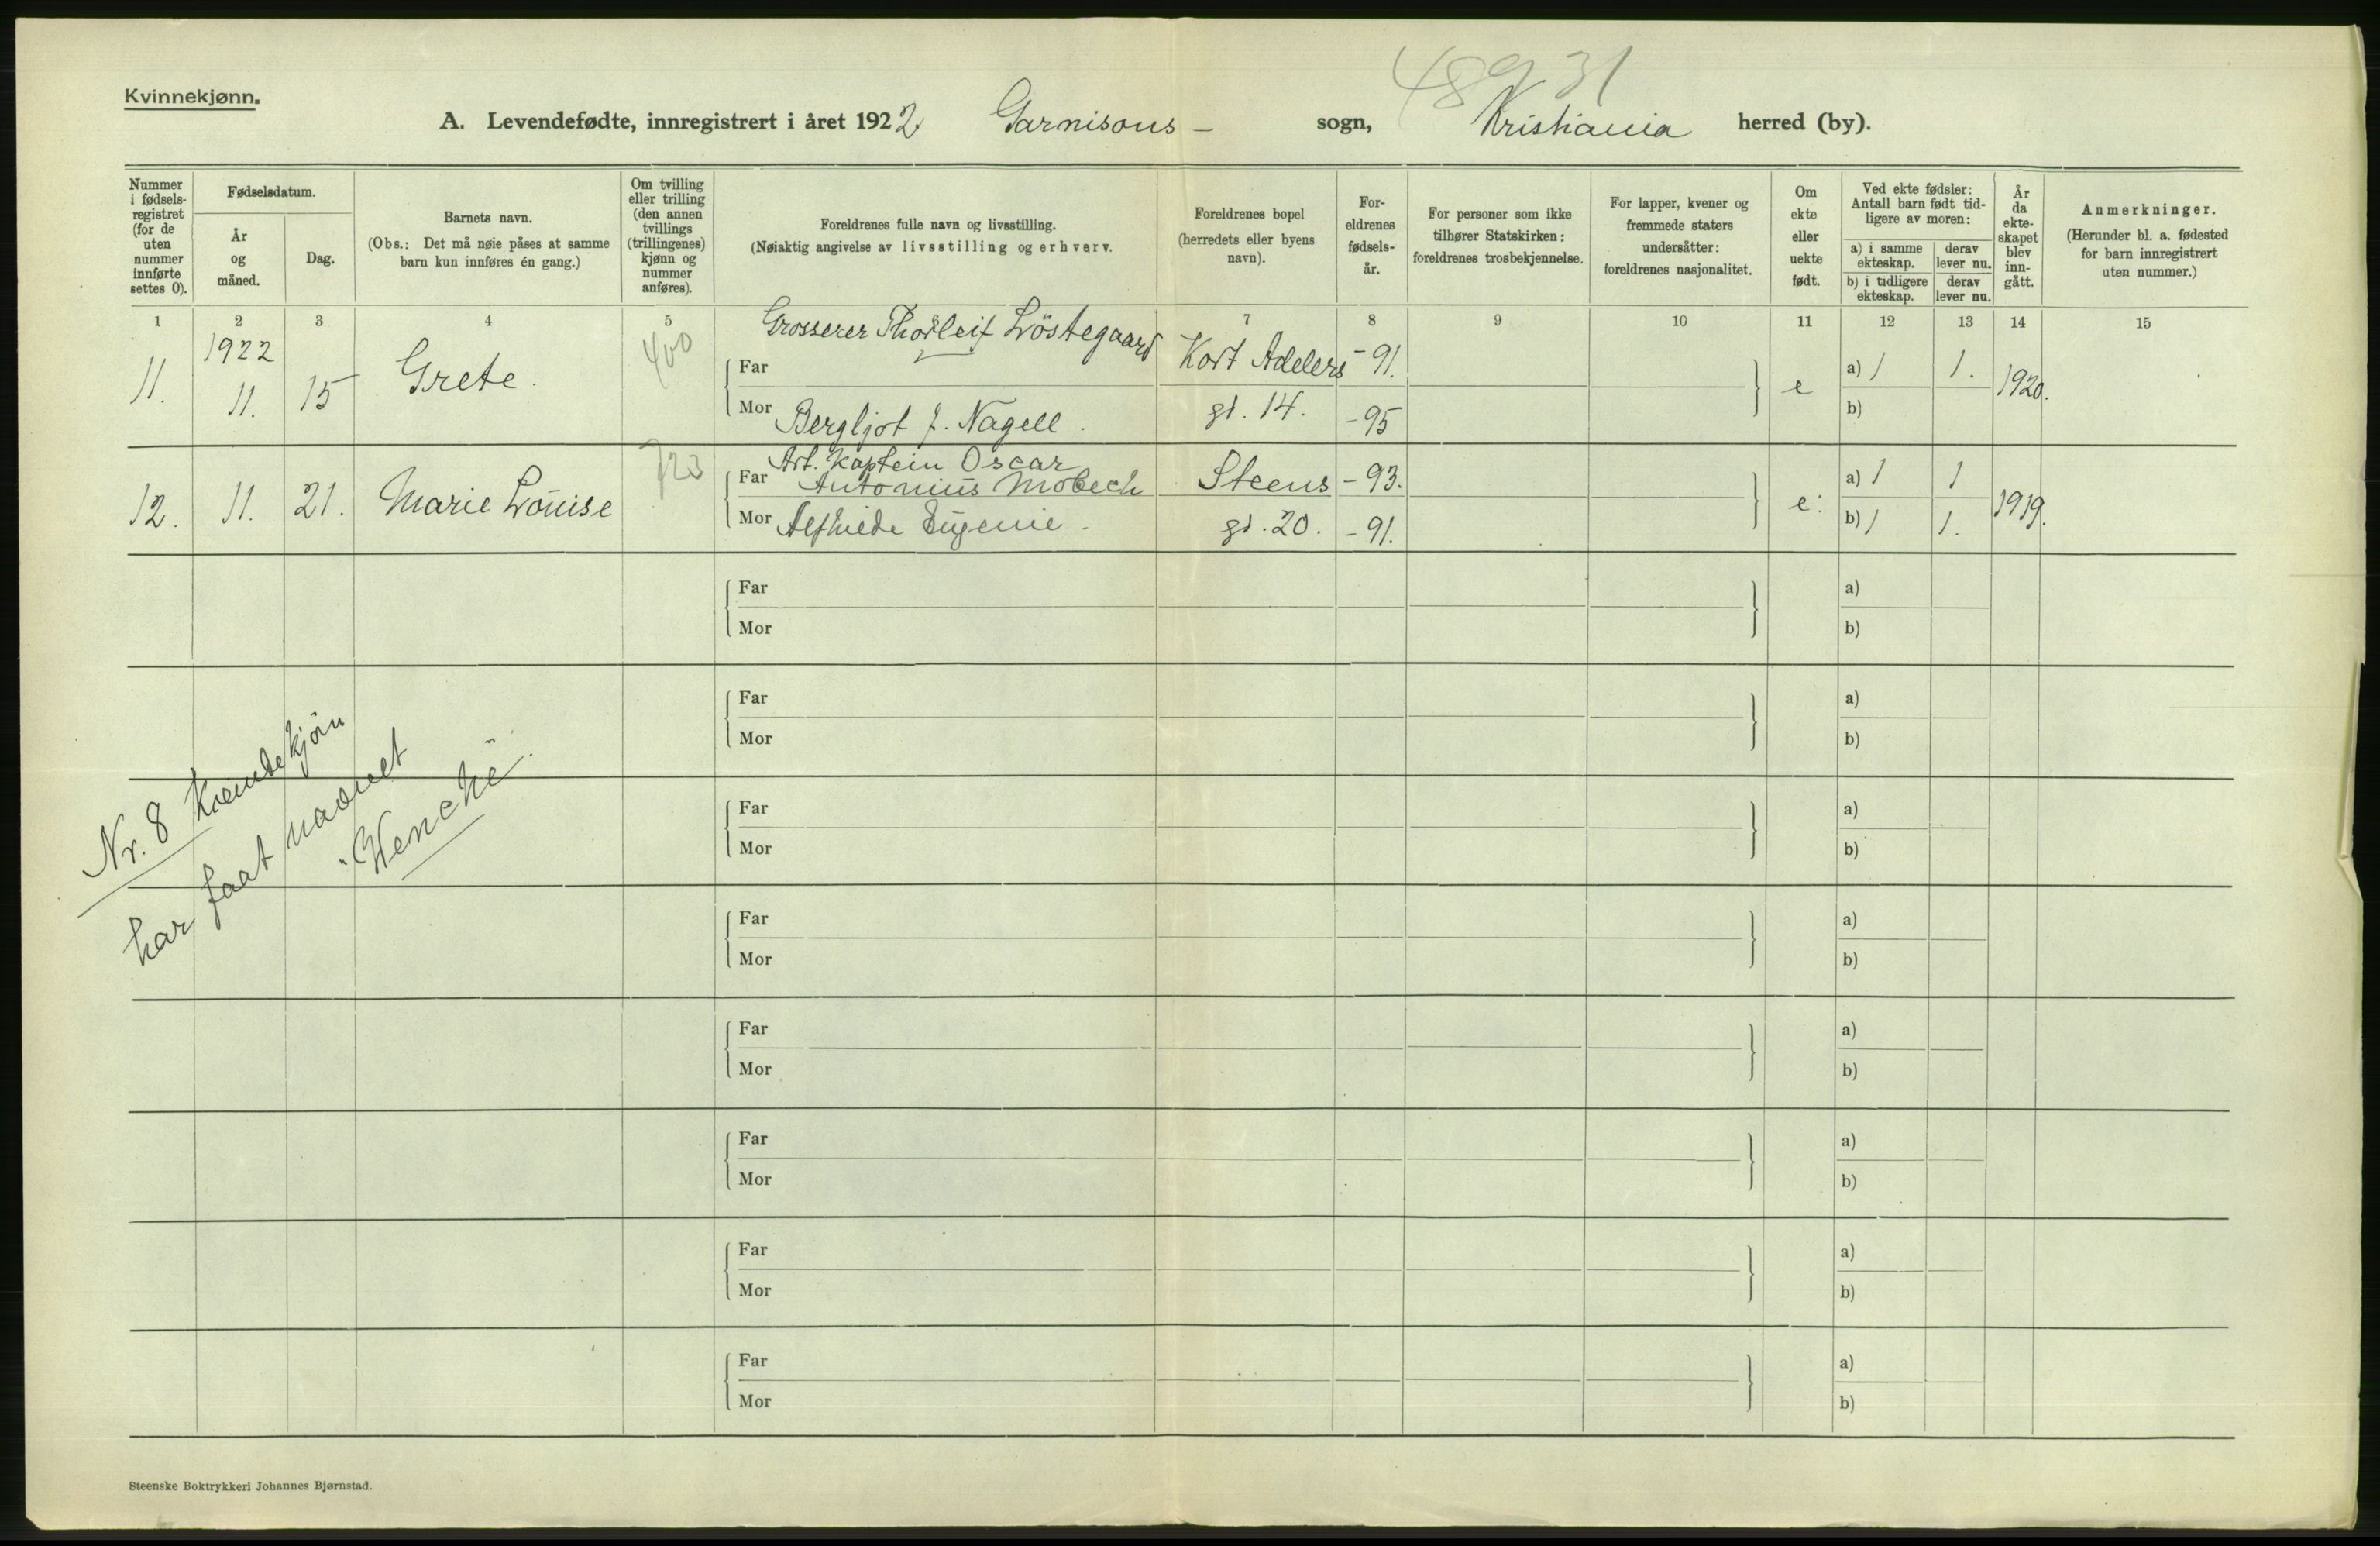 48931
Kvinnekjønn.
A. Levendefødte, innregistrert i året 1922 Garnisons- sogn, Kristiania herred (by).
Nummer i fødsels- registret (for de uten nummer innførte settes 0).
Fødselsdatum.
År og måned.
Dag.
Barnets navn.
(Obs.: Det må nøie påses at samme barn kun innføres én gang.)
Om tvilling eller trilling (den annen tvillings (trillingenes) kjønn og nummer anføres).
Foreldrenes fulle navn og livsstilling.
(Nøiaktig angivelse av livsstilling og erhverv.
Foreldrenes bopel (herredets eller byens navn).
For- eldrenes fødsels- år.
For personer som ikke tilhører Statskirken: foreldrenes trosbekjennelse.
For lapper, kvener og fremmede staters undersåtter: foreldrenes nasjonalitet.
Om ekte eller uekte født.
Ved ekte fødsler: Antall barn født tid- ligere av moren:
a) i samme ekteskap. derav lever nu.
b) i tidligere ekteskap. derav lever nu.
År da ekte- skapet blev inn- gått.
Anmerkninger.
(Herunder bl. a. fødested for barn innregistrert uten nummer.)
1 2 3 4 5 6 7 8 9 10 11 12 13 14 15
1922
11. 11. 15 Grete. 400
Grosserer Thorleif Løstegaard
Far Kort Adelers -91. a) 1 1.
e 1920.
Mor Bergljot J. Nagell. gt. 14. -95 b)
12. 11. 21. Marie Louise 723
Art. Kaptein Oscar
Far Antonius Mobech Steens -93. a) 1 1
e: 1919.
Mor Alfhilde Eugenie. gt. 20. -91. b) 1 1.
Far a)
Mor b)
Far a)
Mor b)
Far a)
Mor b)
Far a)
Mor b)
Far a)
Mor b)
Far a)
Mor b)
Far a)
Mor b)
Far a)
Mor b)
Nr. 8 Kvindekjøn
har faat navnet
"Wenche".
Steenske Boktrykkeri Johannes Bjørnstad.